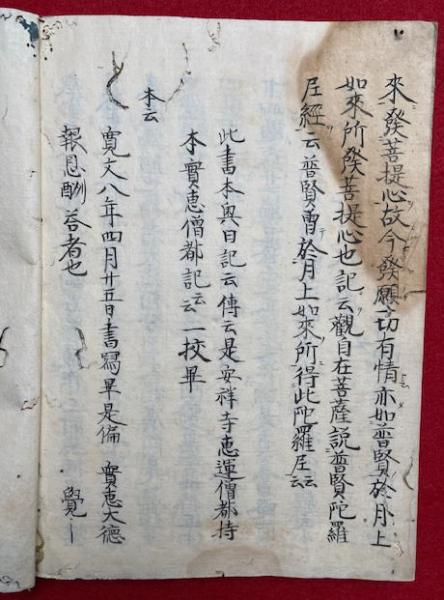 來發菩提心故今發願一切有情亦如普賢於月上
如來所發菩提心也記云觀自在菩薩說普賢陀羅
尼經云普賢曾於月上如來所得此陀羅尼云云
此書本奧日記云傳云是安祥寺恵運僧都持
本實恵僧都記云云一挍畢
本云
寛文八年四月廿五日書寫畢是偏實恵大德
報恩酬荅者也 覺